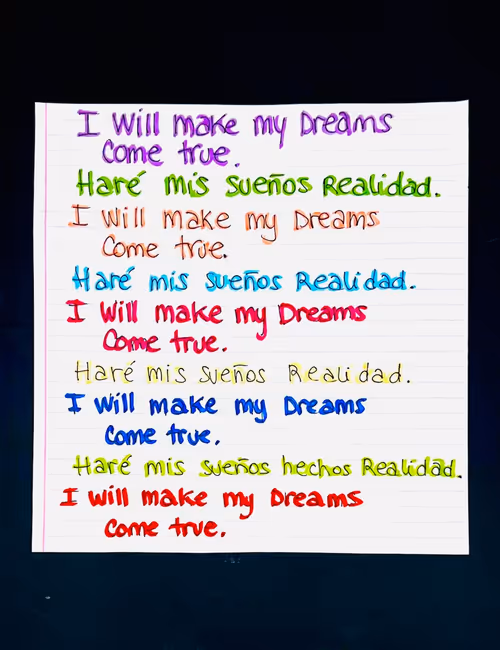 I Will make my Dreams
Come true.
Haré mis sueños Realidad.
I Will make my Dreams
Come true.
Haré mis sueños Realidad.
I Will make my Dreams
Come true.
Haré mis sueños Realidad.
I Will make my Dreams
Come true.
Haré mis sueños hechos Realidad.
I will make my Dreams
Come true.